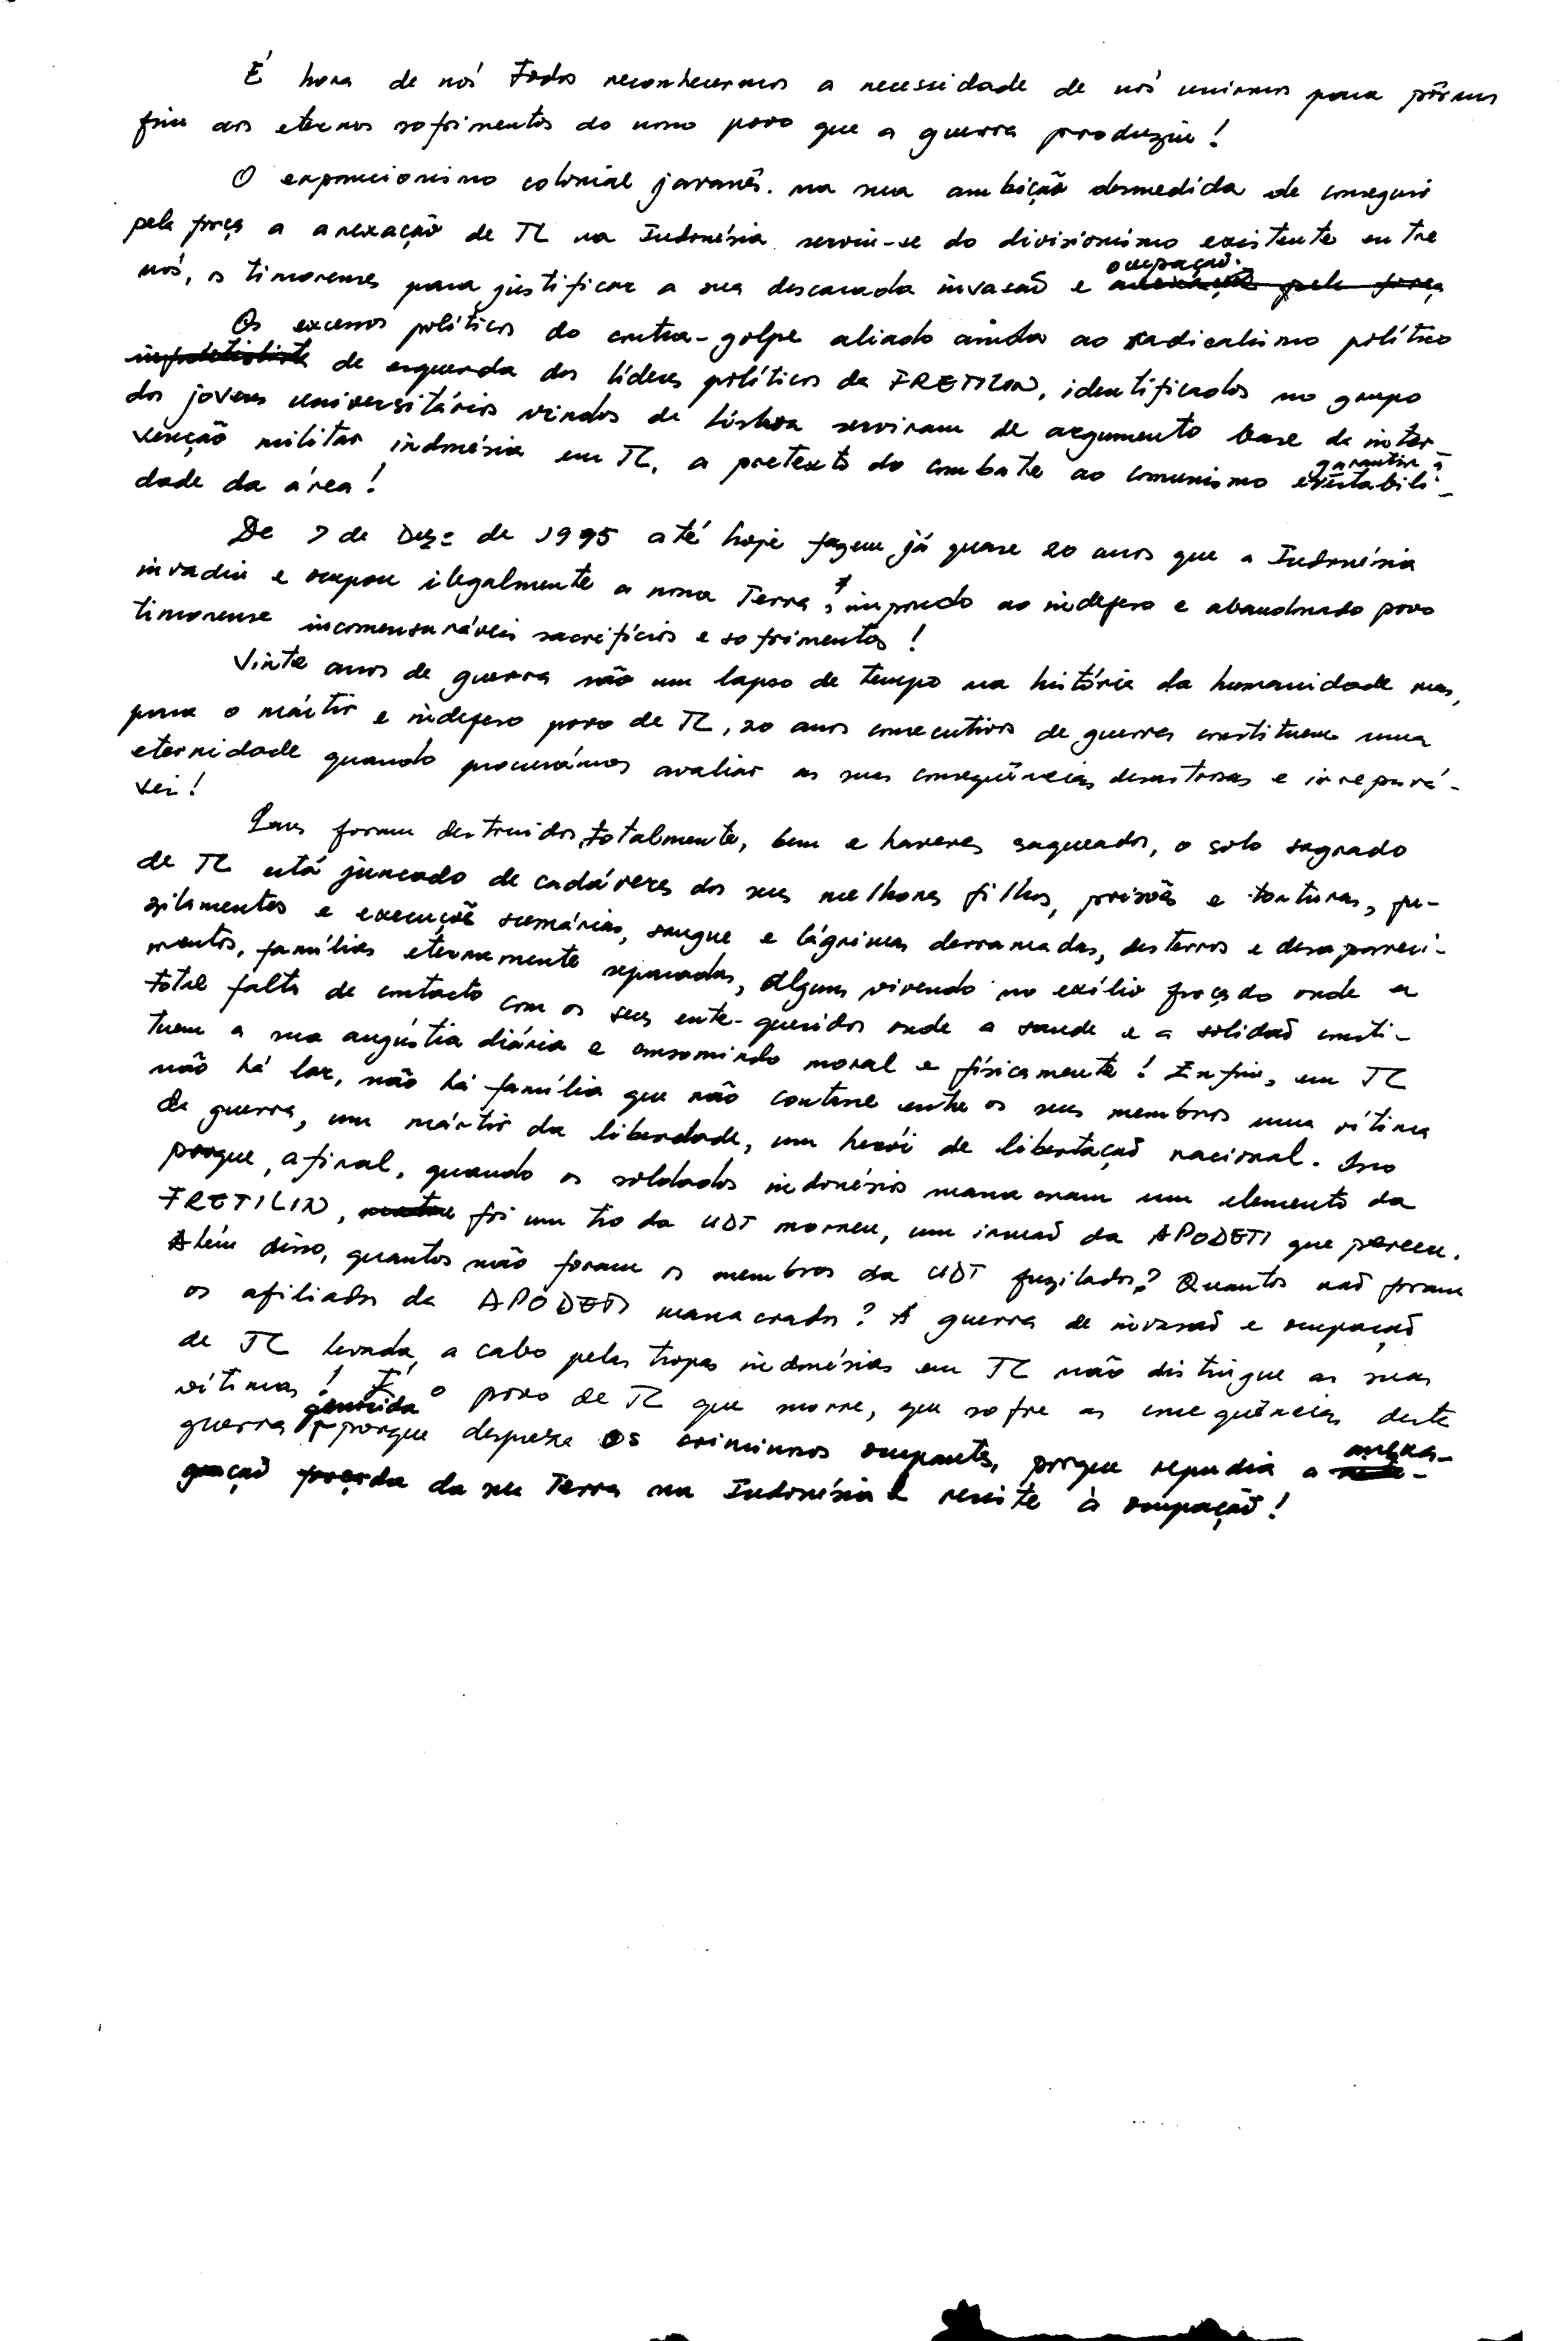 É hora de nós todos reconhecermos a necessidade de nós unirmos para pôrmos
fim aos eternos sofrimentos do nosso povo que a guerra produziu!
O expancionismo colonial javanês. na sua ambição desmedida de conseguir
pela força a anexação de TL na Indonésia serviu-se do divisionismo existente entre
nós, os timorenses para justificar a sua descarada invasão e ocupação.
Os excessos políticos do contra-golpe aliado ainda ao radicalismo político
de esquerda dos líderes políticos da FRETILIN, identificados no grupo
dos jovens universitários vindos de Lisboa serviram de argumento base da inter-
venção militar indonésia em TL, a pretexto do combate ao comunismo e garantir a estabili-
dade da área!
De 7 de Dez.º de 1995 até hoje fazem já quase 20 anos que a Indonésia
invadiu e ocupou ilegalmente a nossa Terra, impondo ao indefeso e abandonado povo
timorense incomensuráveis sacrifícios e sofrimentos!
Vinte anos de guerra são um lapso de tempo na história da humanidade mas,
para o mártir e indefeso povo de TL, 20 anos consecutivos de guerra constituem uma
eternidade quando procurámos avaliar as suas conseqüências desastrosas e irrepará-
veis!
Lares foram destruidos totalmente, bens e haveres saqueados, o solo sagrado
de TL está juncado de cadáveres dos seus melhores filhos, prisões e torturas, fu-
zilamentos e execuções sumárias, sangue e lágrimas derramadas, desterros e desapareci-
mentos, famílias eternamente separadas, alguns vivendo no exílio forçado onde a
total falta de contacto com os seus ente-queridos onde a saude e a solidão consti-
tuem a sua angústia diária e consomindo moral e físicamente! Enfim, em TL
não há lar, não há família que não contasse entre os seus membros uma vítima
da guerra, um mártir da liberdade, um herói de libertação nacional. Isso
porque, afinal, quando os soldados indonésios massacraram um elemento da
FRETILIN, foi um tio da UDT morreu, um irmão da APODETI que pereceu.
Além disso, quantos não foram os membros da UDT fuzilados? Quantos não foram
os afiliados da APODETI massacrados? A guerra de invasão e ocupação
de TL levada a cabo pelas tropas indonésias em TL não distingue as suas
vítimas! É o povo de TL que morre, que sofre as conseqüências desta
guerra genocida porque despreza os criminosos ocupantes, porque repudia a anexa-
ção forçada da sua Terra na Indonésia e resiste à ocupação!